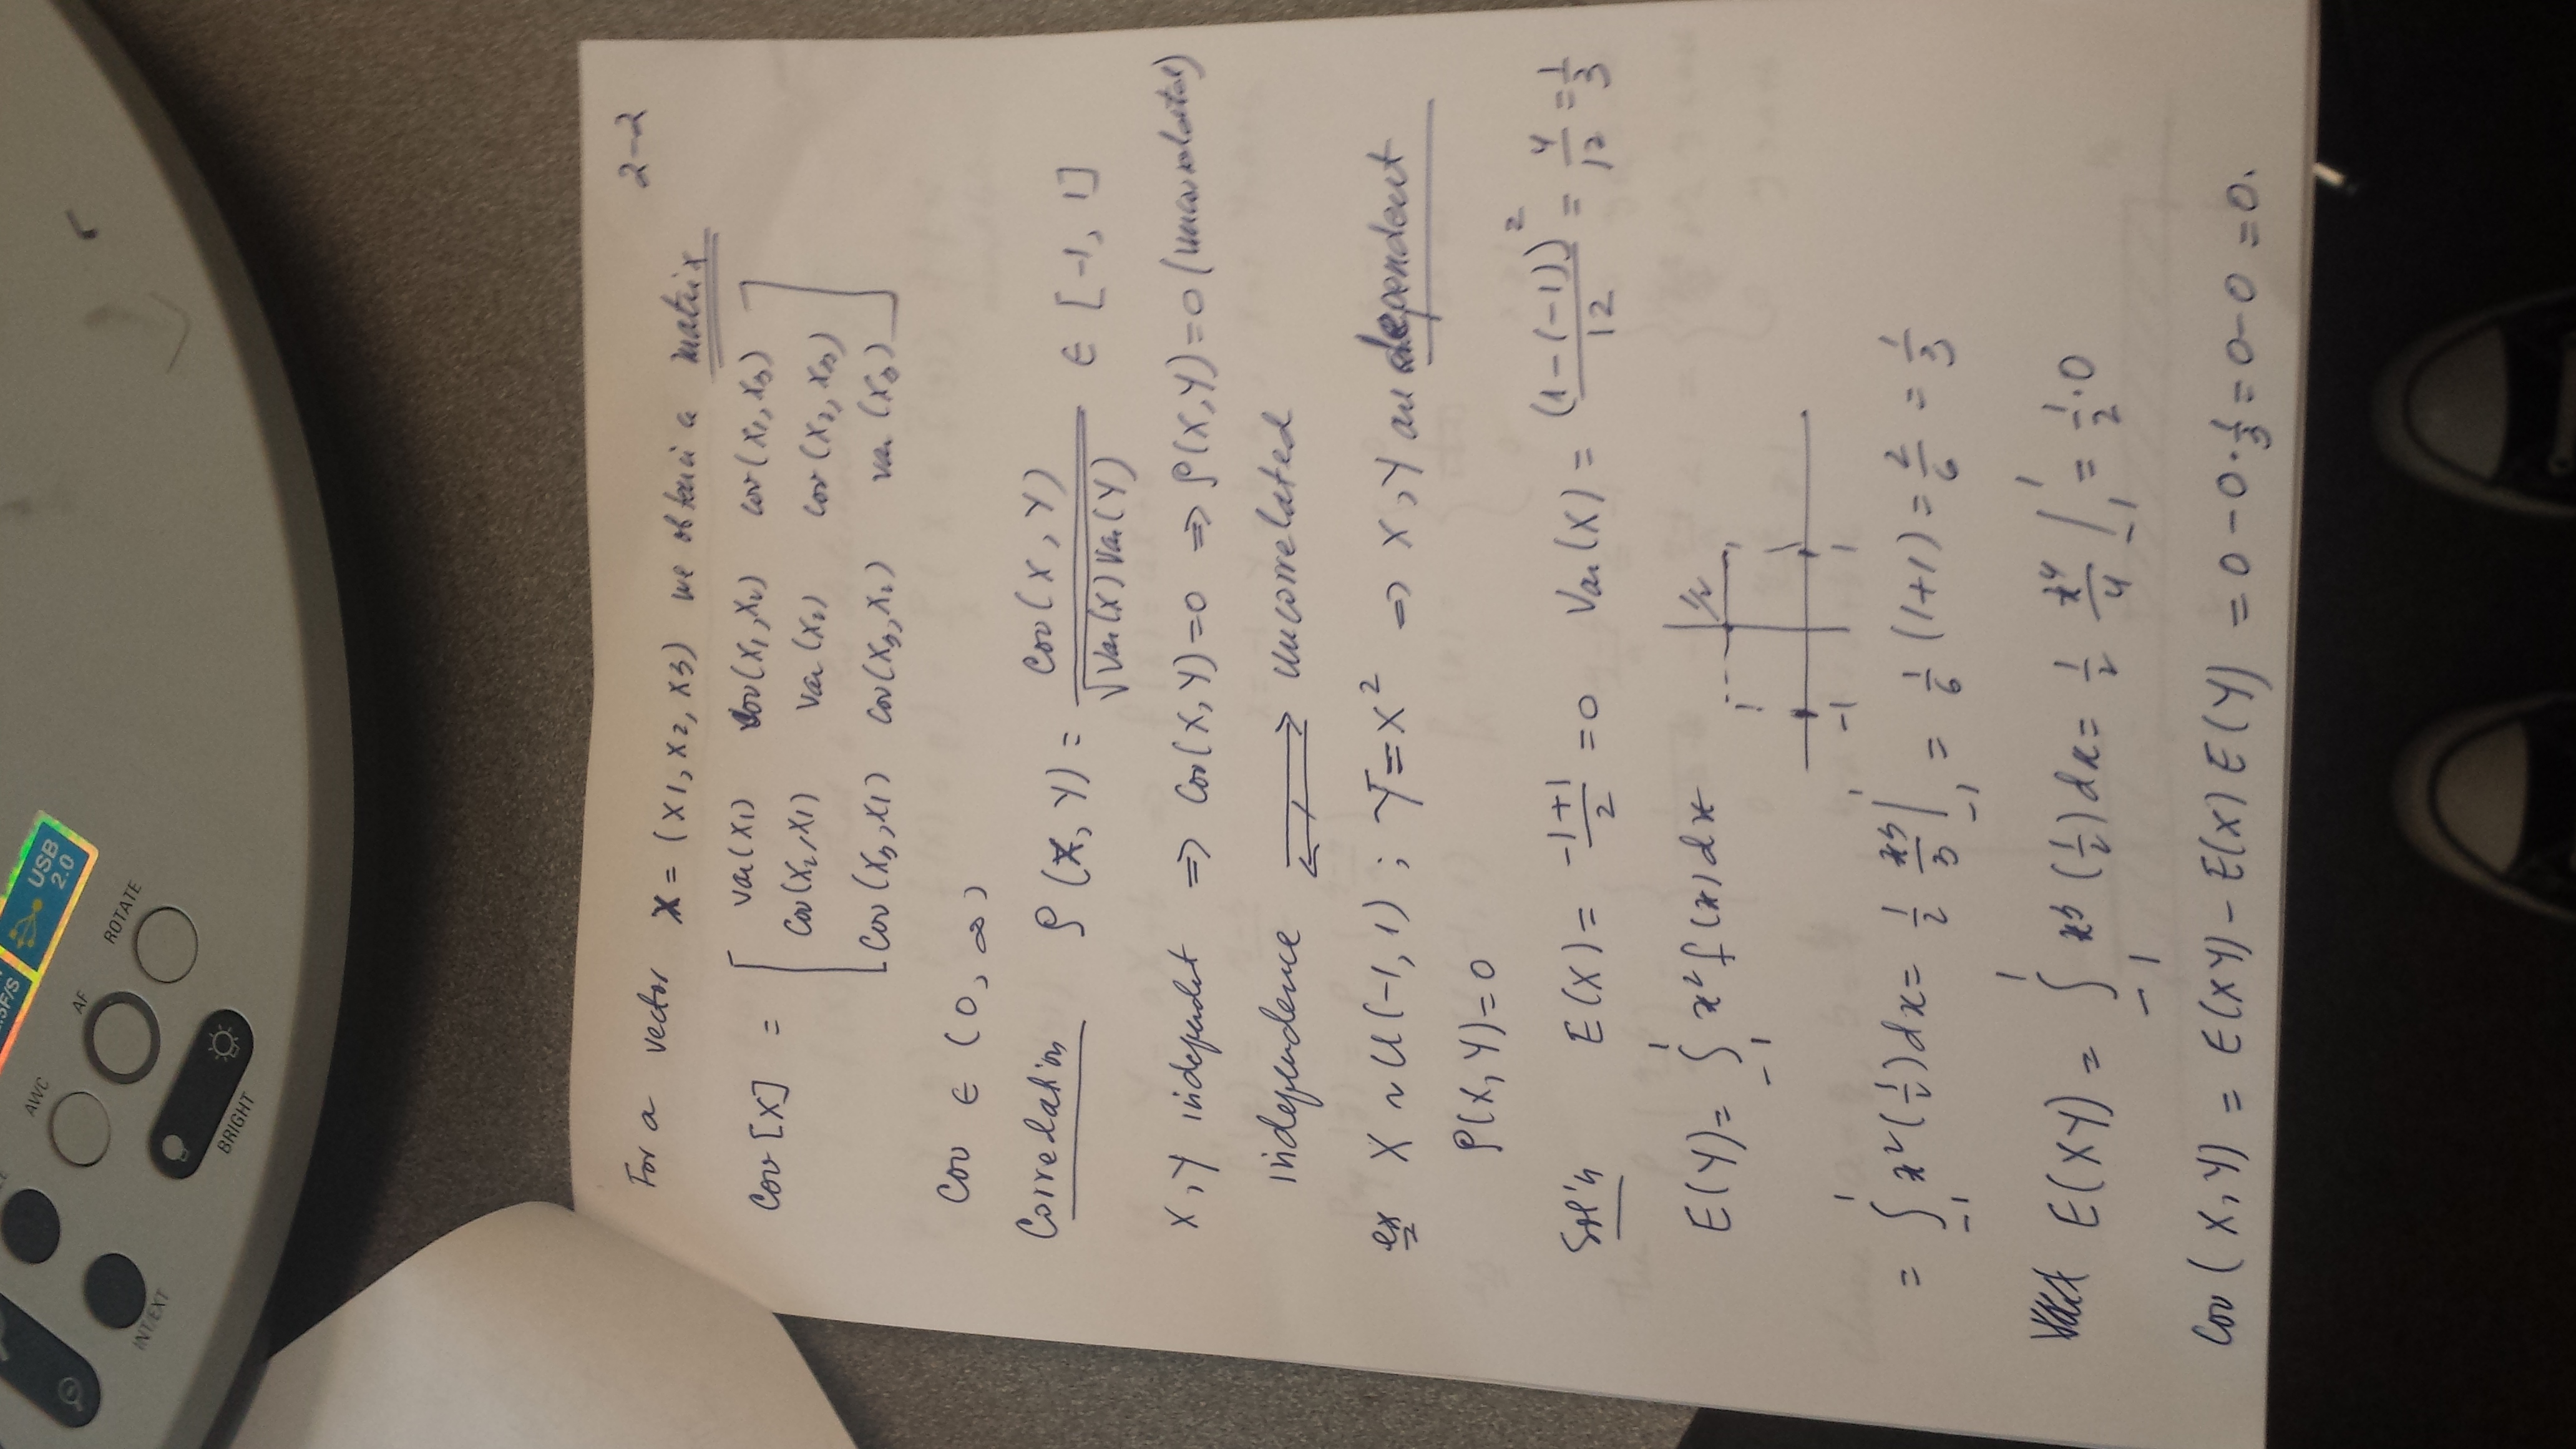 2-2
For a vector X = (X1, X2, X3) we obtain a matrix
Cov [X] = [ Var(X1) Cov(X1, X2) Cov(X1, X3)
Cov(X2, X1) Var(X2) Cov(X2, X3)
Cov(X3, X1) Cov(X3, X2) Var(X3) ]
Cov ∈ (0, ∞)
Correlation ρ(X, Y) = Cov(X, Y) / √Var(X) Var(Y) ∈ [-1, 1]
X, Y independent ⇒ Cov(X, Y) = 0 ⇒ ρ(X, Y) = 0 (uncorrelated)
independence ⇄ uncorrelated
ex X ~ U(-1, 1); Y = X² ⇒ X, Y are dependent
ρ(X, Y) = 0
Sol'n E(X) = -1+1/2 = 0 Var(X) = (1-(-1))²/12 = 4/12 = 1/3
E(Y) = ∫₋₁¹ x² f(x) dx
1/2
-1 1
= ∫₋₁¹ x² (1/2) dx = 1/2 x³/3 |₋₁¹ = 1/6 (1+1) = 2/6 = 1/3
E(XY) = ∫₋₁¹ x³ (1/2) dx = 1/2 x⁴/4 |₋₁¹ = 1/2 · 0
Cov(X, Y) = E(XY) - E(X) E(Y) = 0 - 0 · 1/3 = 0 - 0 = 0.
USB 2.0
ROTATE
AF
AWC
BRIGHT
INT/EXT